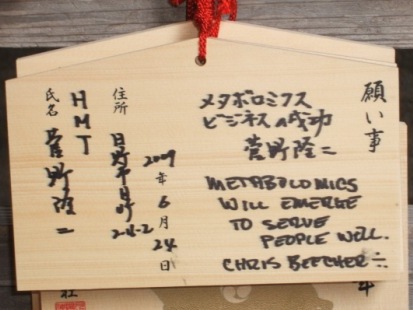 願い事
メタボロミクス
ビジネスの成功
菅野隆二
METABOLOMICS
WILL EMERGE
TO SERVE
PEOPLE WELL.
CHRIS BEECHER
2009年6月24日
住所
日野市日野
2-4-2
氏名
HMT
菅野隆二
社